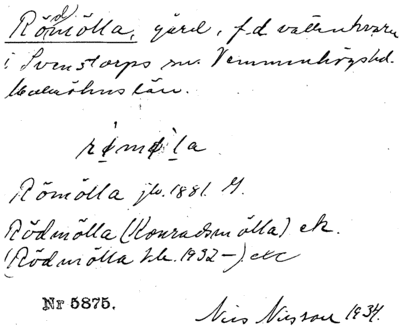 Rödmölla, gård, f.d. vattenkvarn
i Svenstorps sn. Vemmenhögs hd.
Malmöhus län.
rømøla
Römölla jb. 1881. M.
Rödmölla (Konradsmölla) ek.
(Rödmölla tk. 1932–) ek
Nr 5875.
Nils Nilsson 1934.